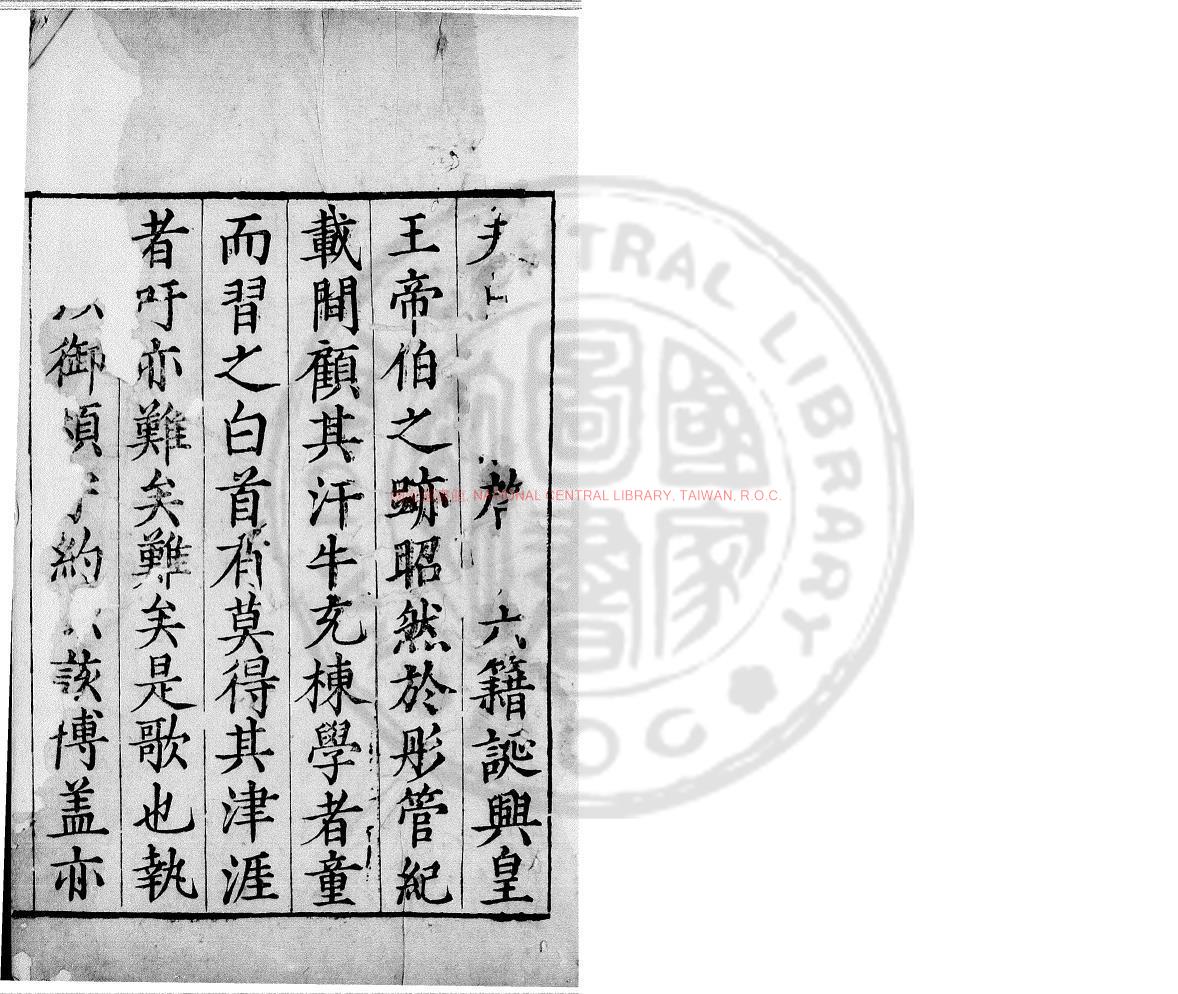 六籍誕興皇
王帝伯之跡昭然於彤管紀
載間顧其汗牛充棟學者童
而習之白首有莫得其津涯
者吁亦難矣難矣是歌也執
御煩約該博盖亦
NATIONAL CENTRAL LIBRARY, TAIWAN, R.O.C.